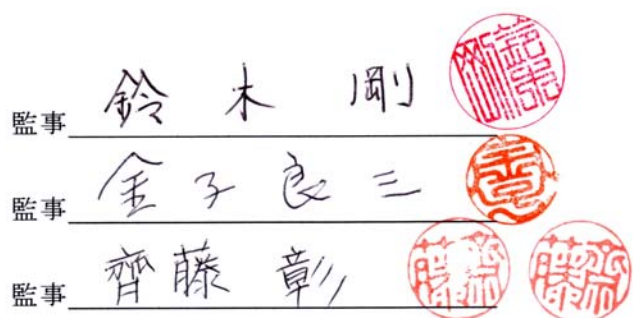 監事 鈴木 剛
監事 金子良三
監事 齊藤 彰